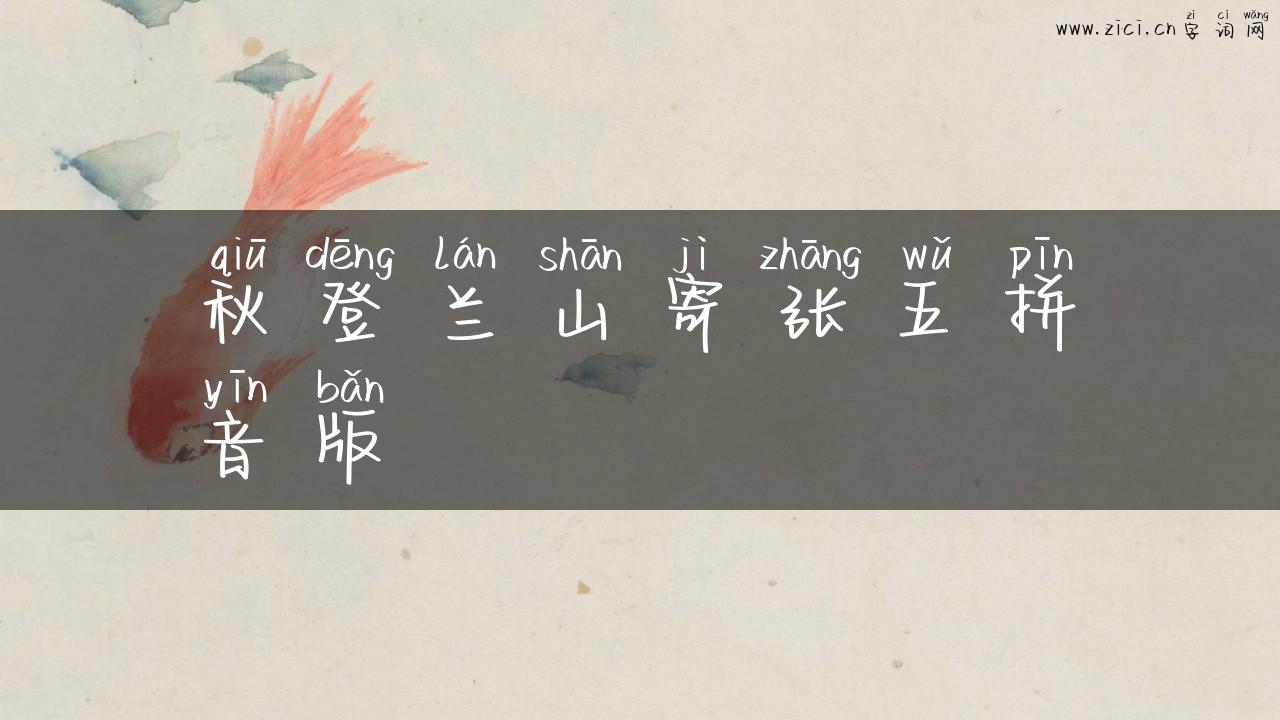 zì cí wǎng
www.zici.cn 字词网
qiū dēng lán shān jì zhāng wǔ pīn
秋登兰山寄张五拼
yīn bǎn
音版